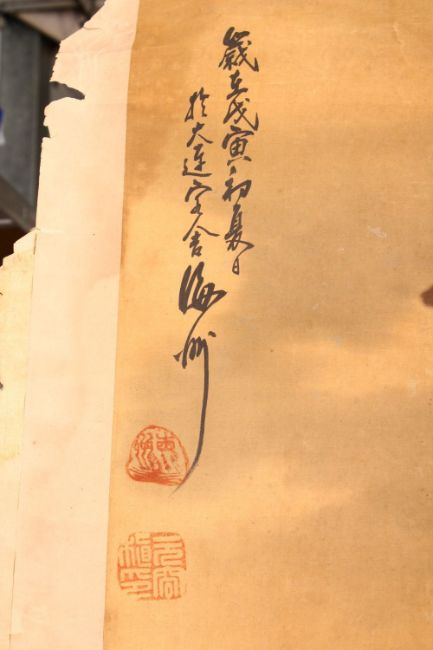 歲在戊寅初夏日
於大連客舍
海州